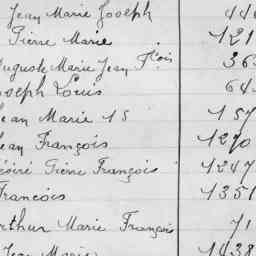 Jean Marie Joseph 446
Pierre Marie 121
Auguste Marie Jean Fçois 363
Joseph Louis 64
Jean Marie 15 157
Jean François 1290
Désiré Pierre François 1247
François 1351
Arthur Marie François 71
Jean Marie 1438